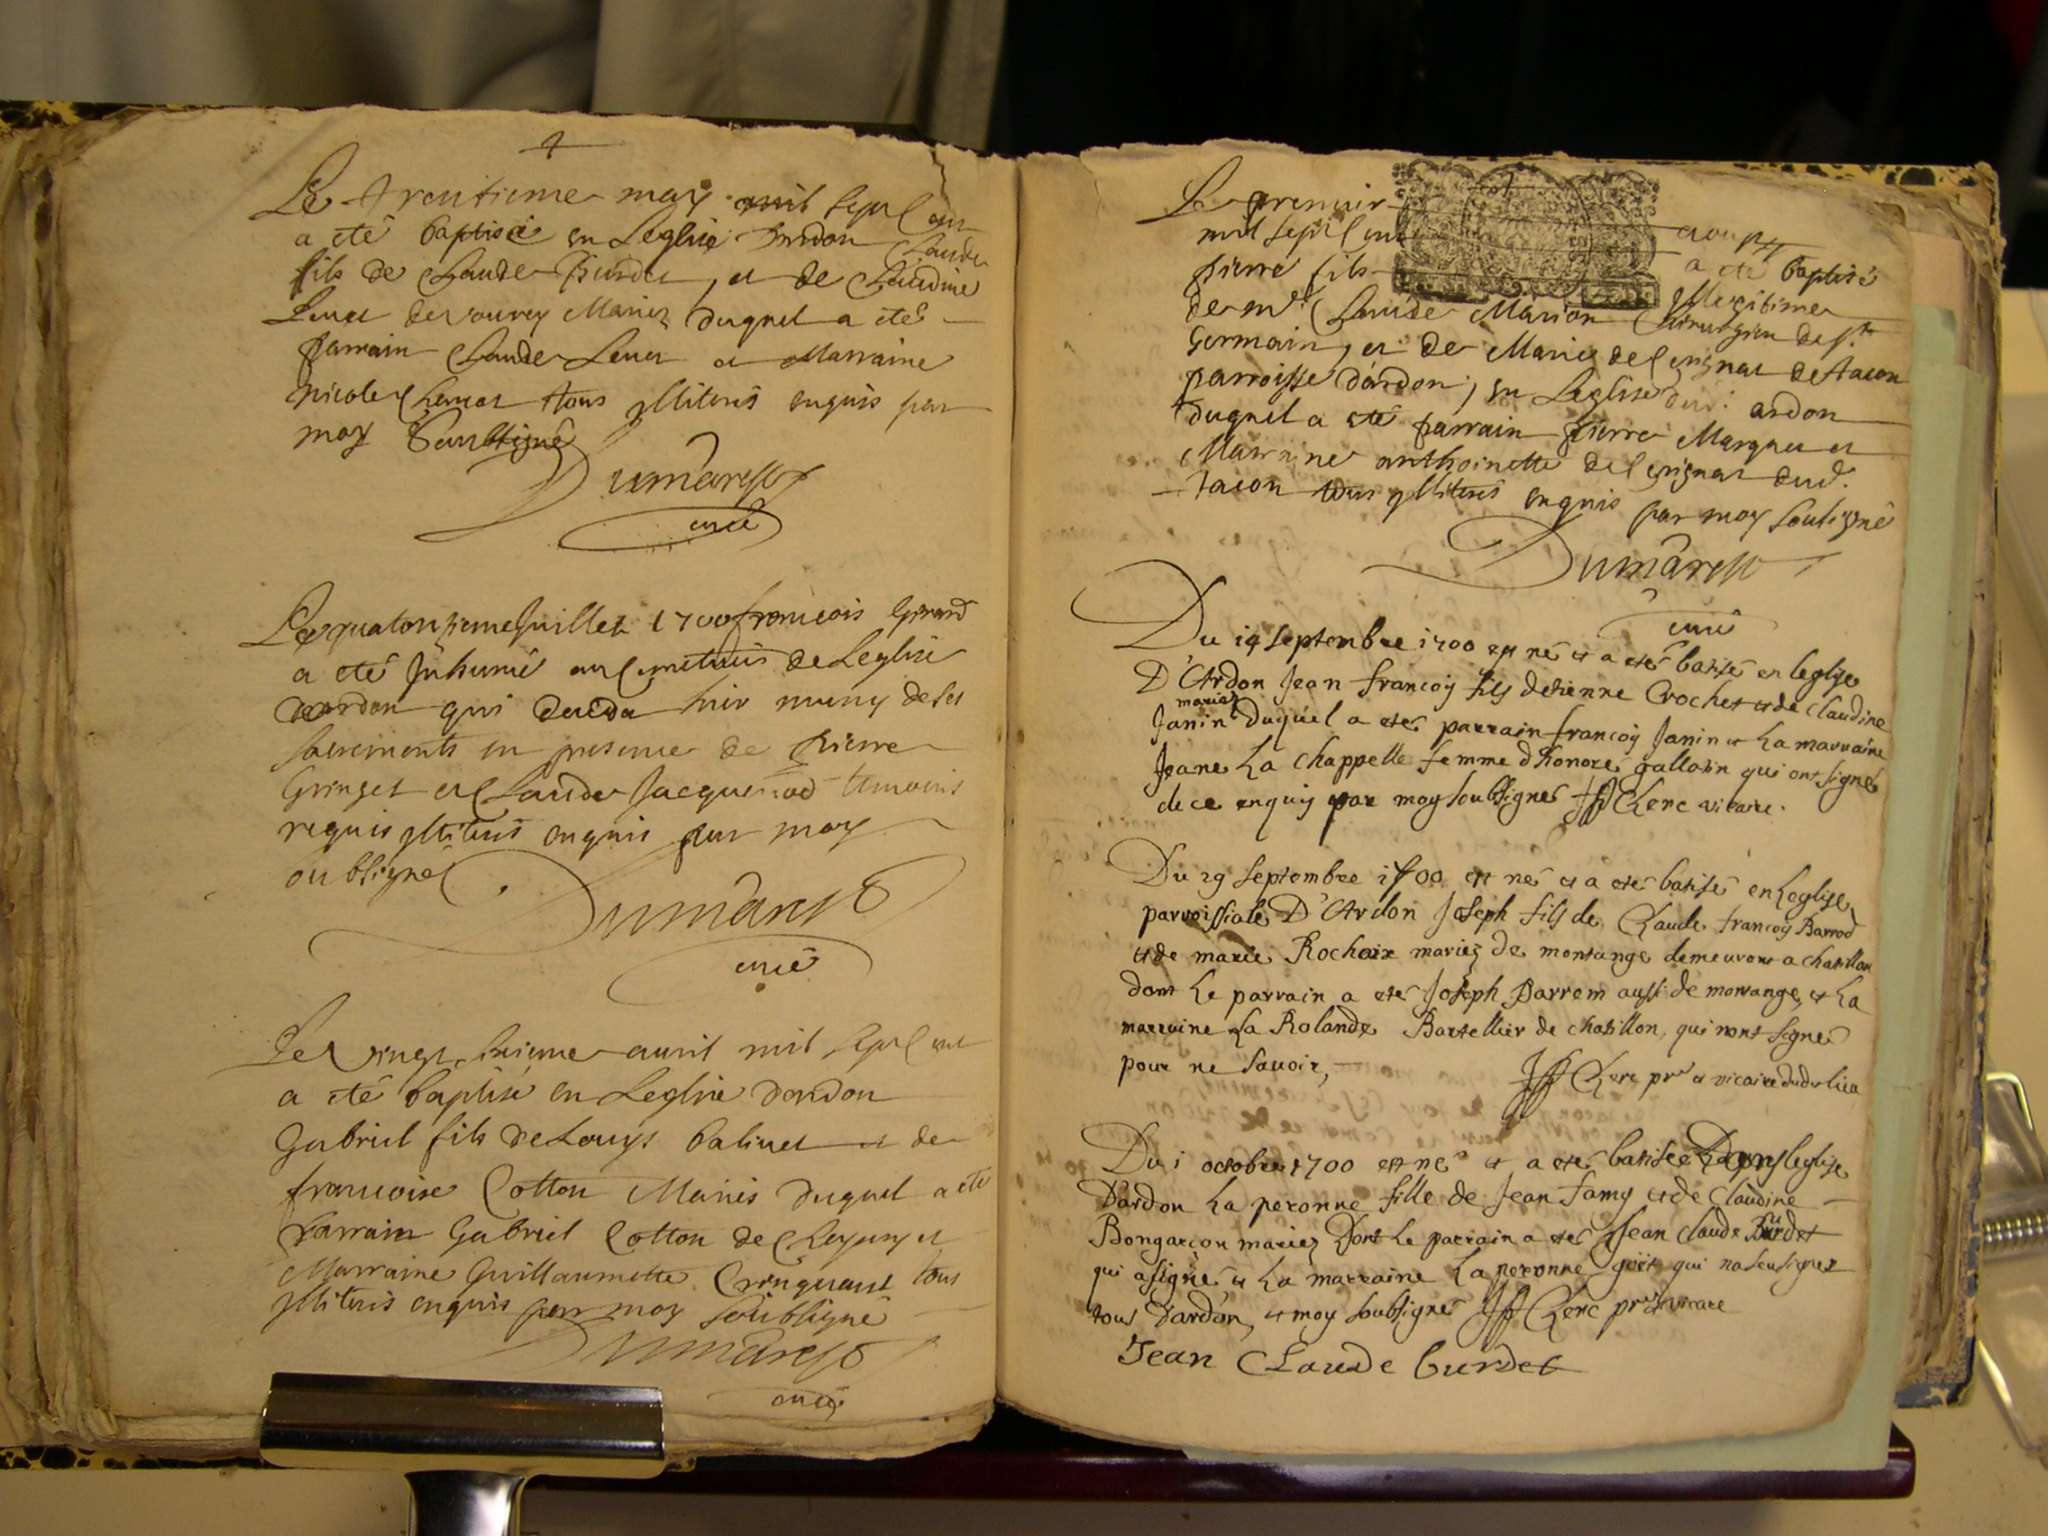 Le trentieme may mil sept cent
a eté baptisé en Leglise dardon Claude
fils de Claude Burdet, et de Claudine
Mariez duquel a eté
parrain Claude et Marraine
nicole tous illiterés enquis par
moy Soubsigné
Dumarest
curé
Le quatorzieme Juillet 1700 francois Girard
a eté Inhumé au Cimetiere de Leglise
dardon qui deceda hier muny de ses
sacrements en presence de pierre
Gringet et Claude Jacquenod temoins
requis illiterés enquis par moy
soubsigné
Dumarest
curé
Le vingt sixieme avril mil sept cent
a eté baptisé en Leglise dardon
Gabriel fils de Louys balivet et de
francoise Cotton Mariés duquel a eté
Parrain Gabriel Cotton de et
Marraine Guillaumette tous
illiterés enquis par moy soubsigné
Dumarest
curé
Le premier aoust
mil sept cent a eté baptisé
pierre fils legitime
de mr Claude Marion Chirurgien de st
Germain, et de Marie de tacon
parroisse dardon, en Leglise dud. ardon
duquel a eté parrain pierre Marquet et
Marraine anthoinette dud.
tacon tous illiterés enquis par moy soubsigné
Dumarest
curé
Du 14 septembre 1700 est né et a eté batisé en leglise
D'Ardon Jean francoy fils detienne Crochet et de claudine
mariez
Janin duquel a eté parrain francoy Janin et La marraine
Jeane La chappelle femme dhonoré gallatin qui ont signé
de ce enquis par moy soubsigné Jff Clerc vicaire.
Du 29 septembre 1700 est né et a eté batisé en Leglise
parroissiale D'Ardon Joseph fils de Claude francoy Barrod
et de marie Rochaix mariez de montange demeurant a chatillon
dont Le parrain a eté Joseph Barrom aussi de montange, et La
marraine La Rolande Bartellier de chatillon, qui nont signé
pour ne savoir,
Jff Clerc pre et vicaire dudt lieu
Du 1 octobre 1700 est né et a eté batisée Dans leglise
Dardon La peronne fille de Jean famy et de claudine
Bongarcon mariez Dont Le parrain a eté Jean claude Burdet
qui a signé et La marraine La peronne goët qui na seu signer
tous Dardon, et moy soubsigné Jff Clerc pre et vicaire
Jean Claude burdet